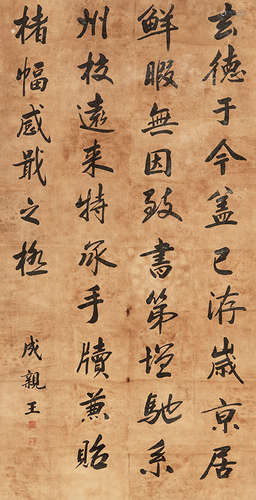 玄德于今盖已洊歲京居
鮮暇無因致書第增馳系
州枝遠来特承手牘蒹貽
楮幅感戢之極
成親王